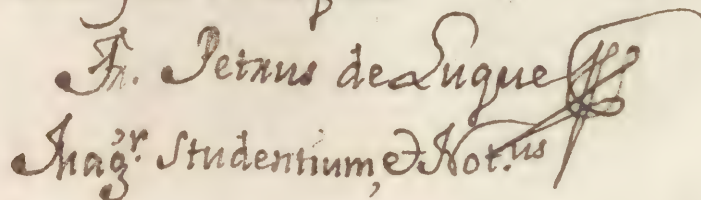 Fr. Petrus de Luque
Mag.r studentium, et Not.us